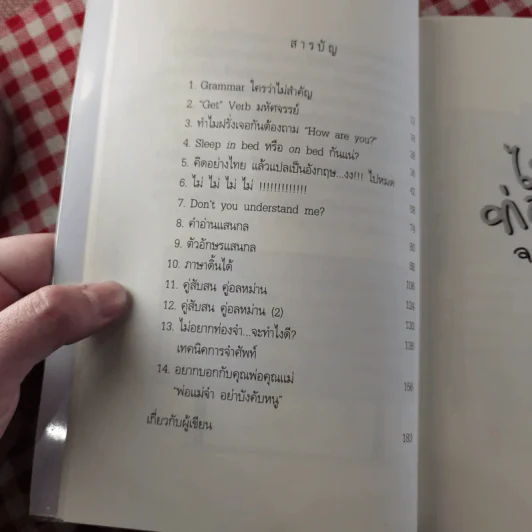 สารบัญ
1. Grammar ใครว่าไม่สำคัญ
2. "Get" Verb มหัศจรรย์ 12
3. ทำไมฝรั่งเจอกันต้องถาม "How are you?"
4. Sleep in bed หรือ on bed กันแน่?
5. คิดอย่างไทย แล้วแปลเป็นอังกฤษ...งง!!! ไปหมด
6. ไม่ ไม่ ไม่ ไม่ !!!!!!!!!!!!!
7. Don't you understand me?
8. คำอ่านแสนกล
9. ตัวอักษรแสนกล
10. ภาษาดิ้นได้
11. คู่สับสน คู่อลหม่าน 106
12. คู่สับสน คู่อลหม่าน (2)
13. ไม่อยากท่องจำ...จะทำไงดี?
เทคนิคการจำศัพท์
14. อยากบอกกับคุณพ่อคุณแม่
"พ่อแม่จ๋า อย่าบังคับหนู"
เกี่ยวกับผู้เขียน